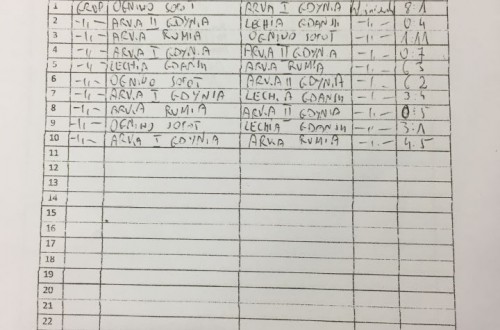 1 GRUP OGNIWO SOPOT ARKA I GDYNIA 8:1
2 -11- ARKA II GDYNIA LECHIA GDAŃSK -11- 0:4
3 -11- ARKA RUMIA OGNIWO SOPOT -11- 1:11
4 -11- ARKA I GDYNIA ARKA II GDYNIA -11- 0:7
5 -11- LECHIA GDAŃSK ARKA RUMIA -11- 6:3
6 -11- OGNIWO SOPOT ARKA II GDYNIA -11- 6:2
7 -11- ARKA I GDYNIA LECHIA GDAŃSK -11- 3:4
8 -11- ARKA RUMIA ARKA II GDYNIA -11- 0:5
9 -11- OGNIWO SOPOT LECHIA GDAŃSK -11- 3:1
10 -11- ARKA I GDYNIA ARKA RUMIA -11- 4:5
11
12
13
14
15
16
17
18
19
20
21
22